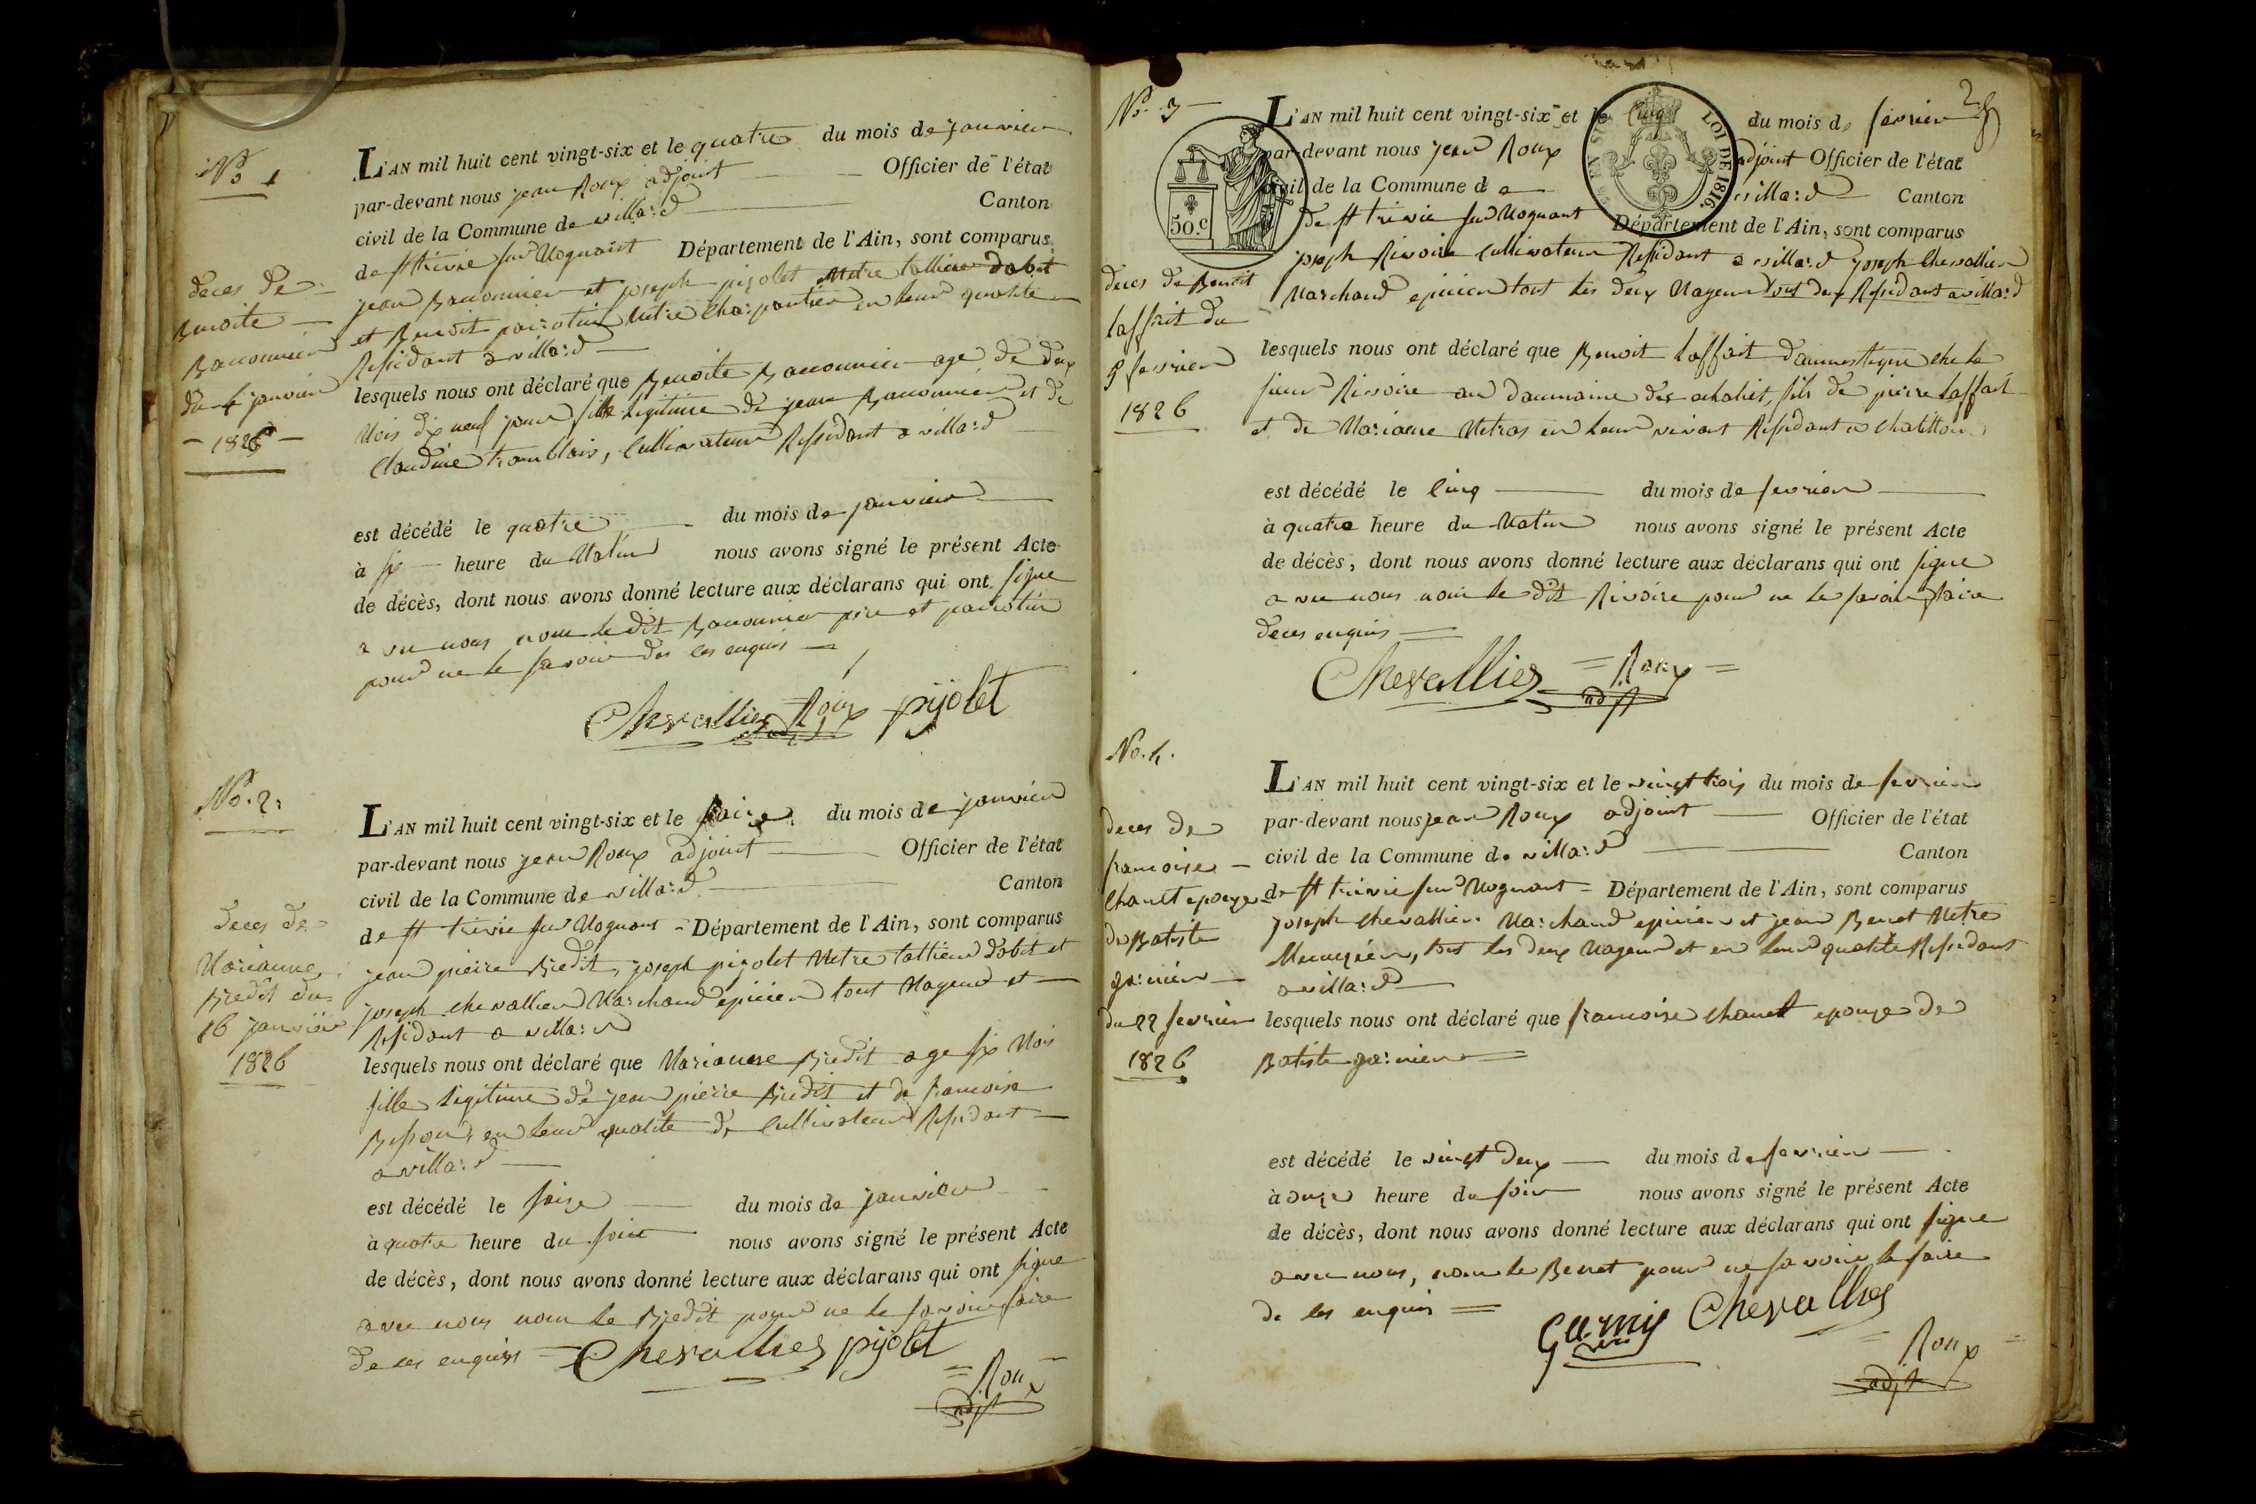 No 1
deces de
Benoite
Bauonnier
du 4 janvier
1826
L'AN mil huit cent vingt-six et le quatre du mois de janvier
par-devant nous jean Roux adjoint Officier de l'état
civil de la Commune de villard Canton
de st trivie sur Mognant Département de l'Ain, sont comparus
jean Bauonnier et joseph pizolet Metre tallieur dabit
et Benoit parrotin Metre Charpantier en leur qualite
Residant a villard
lesquels nous ont déclaré que Benoite Bauonnier age de deux
Mois dix neuf jour fille legitime de jean Bauonnier et de
Claudine tramblais, Cultivateur Residant a villard
est décédé le quatre du mois de janvier
à six heure du Matin nous avons signé le présent Acte
de décès, dont nous avons donné lecture aux déclarans qui ont signe
a vec nous nom le dit Bauonnier pere et parrotin
pour ne le savoir des les enquis
Chevallier Roux pijolet
No. 2.
deces de
Marianne
Bredit du
16 janvier
1826
L'AN mil huit cent vingt-six et le saize du mois de janvier
par-devant nous jean Roux adjoint Officier de l'état
civil de la Commune de villard Canton
de st trivie sur Mognant Département de l'Ain, sont comparus
jean pierre Bredit, joseph pizolet Metre tallieur dobit et
joseph chevallier Marchand epicier tout Mageur et
Residant a villard
lesquels nous ont déclaré que Marianne Bredit age six Mois
fille legitime de jean pierre Bredit et de francoise
Besson, en leur qualite de Cultivateur Residant
a villard
est décédé le saize du mois de janvier
à quatre heure du soir nous avons signé le présent Acte
de décès, dont nous avons donné lecture aux déclarans qui ont signe
avec nous nom le Bredit pour ne le savoir faire
de ces enquis Chevallier pijolet
Roux
adjt
No. 3
28
50.c
LOI DE 1816.
deces de Benoit
laffait du
5 fevrier
1826
L'AN mil huit cent vingt-six et le cinq du mois de fevrier
par-devant nous jean Roux adjoint Officier de l'état
civil de la Commune d a villard Canton
de st trivie sur Mognant Département de l'Ain, sont comparus
joseph Rivoire Cultivateur Residant a villard joseph Chevallier
Marchand epicier tout les deux Mageur tout deux Residant a villard
lesquels nous ont déclaré que Benoit laffait daumestique che le
sieur Rivoire au daumaine des fils de pierre laffait
et de Marianne Metras en leur vivant Residant a Chatillon
est décédé le cinq du mois de fevrier
à quatre heure du Matin nous avons signé le présent Acte
de décès, dont nous avons donné lecture aux déclarans qui ont signe
a vec nous nom le dit Rivoire pour ne le savoir faire
deces enquis
Chevallier Roux
adjt
No. 4.
deces de
francoise
Chanet epouze
de Batiste
garnier
du 22 fevrier
1826
L'AN mil huit cent vingt-six et le vingt trois du mois de fevrier
par-devant nous jean Roux adjoint Officier de l'état
civil de la Commune de villard Canton
de st trivie sur Mognant Département de l'Ain, sont comparus
joseph chevallier Marchand epicier et jean Benet Metre
Menuzier, tout les deux Mageur et en leur qualite Residant
a villard
lesquels nous ont déclaré que francoise Chanet epouze de
Batiste garnier
est décédé le vingt deux du mois de fevrier
à onze heure du soir nous avons signé le présent Acte
de décès, dont nous avons donné lecture aux déclarans qui ont signe
avec nous, nom le Benet pour ne savoir le faire
de les enquis
Garnij Chevallier
Roux
adjt